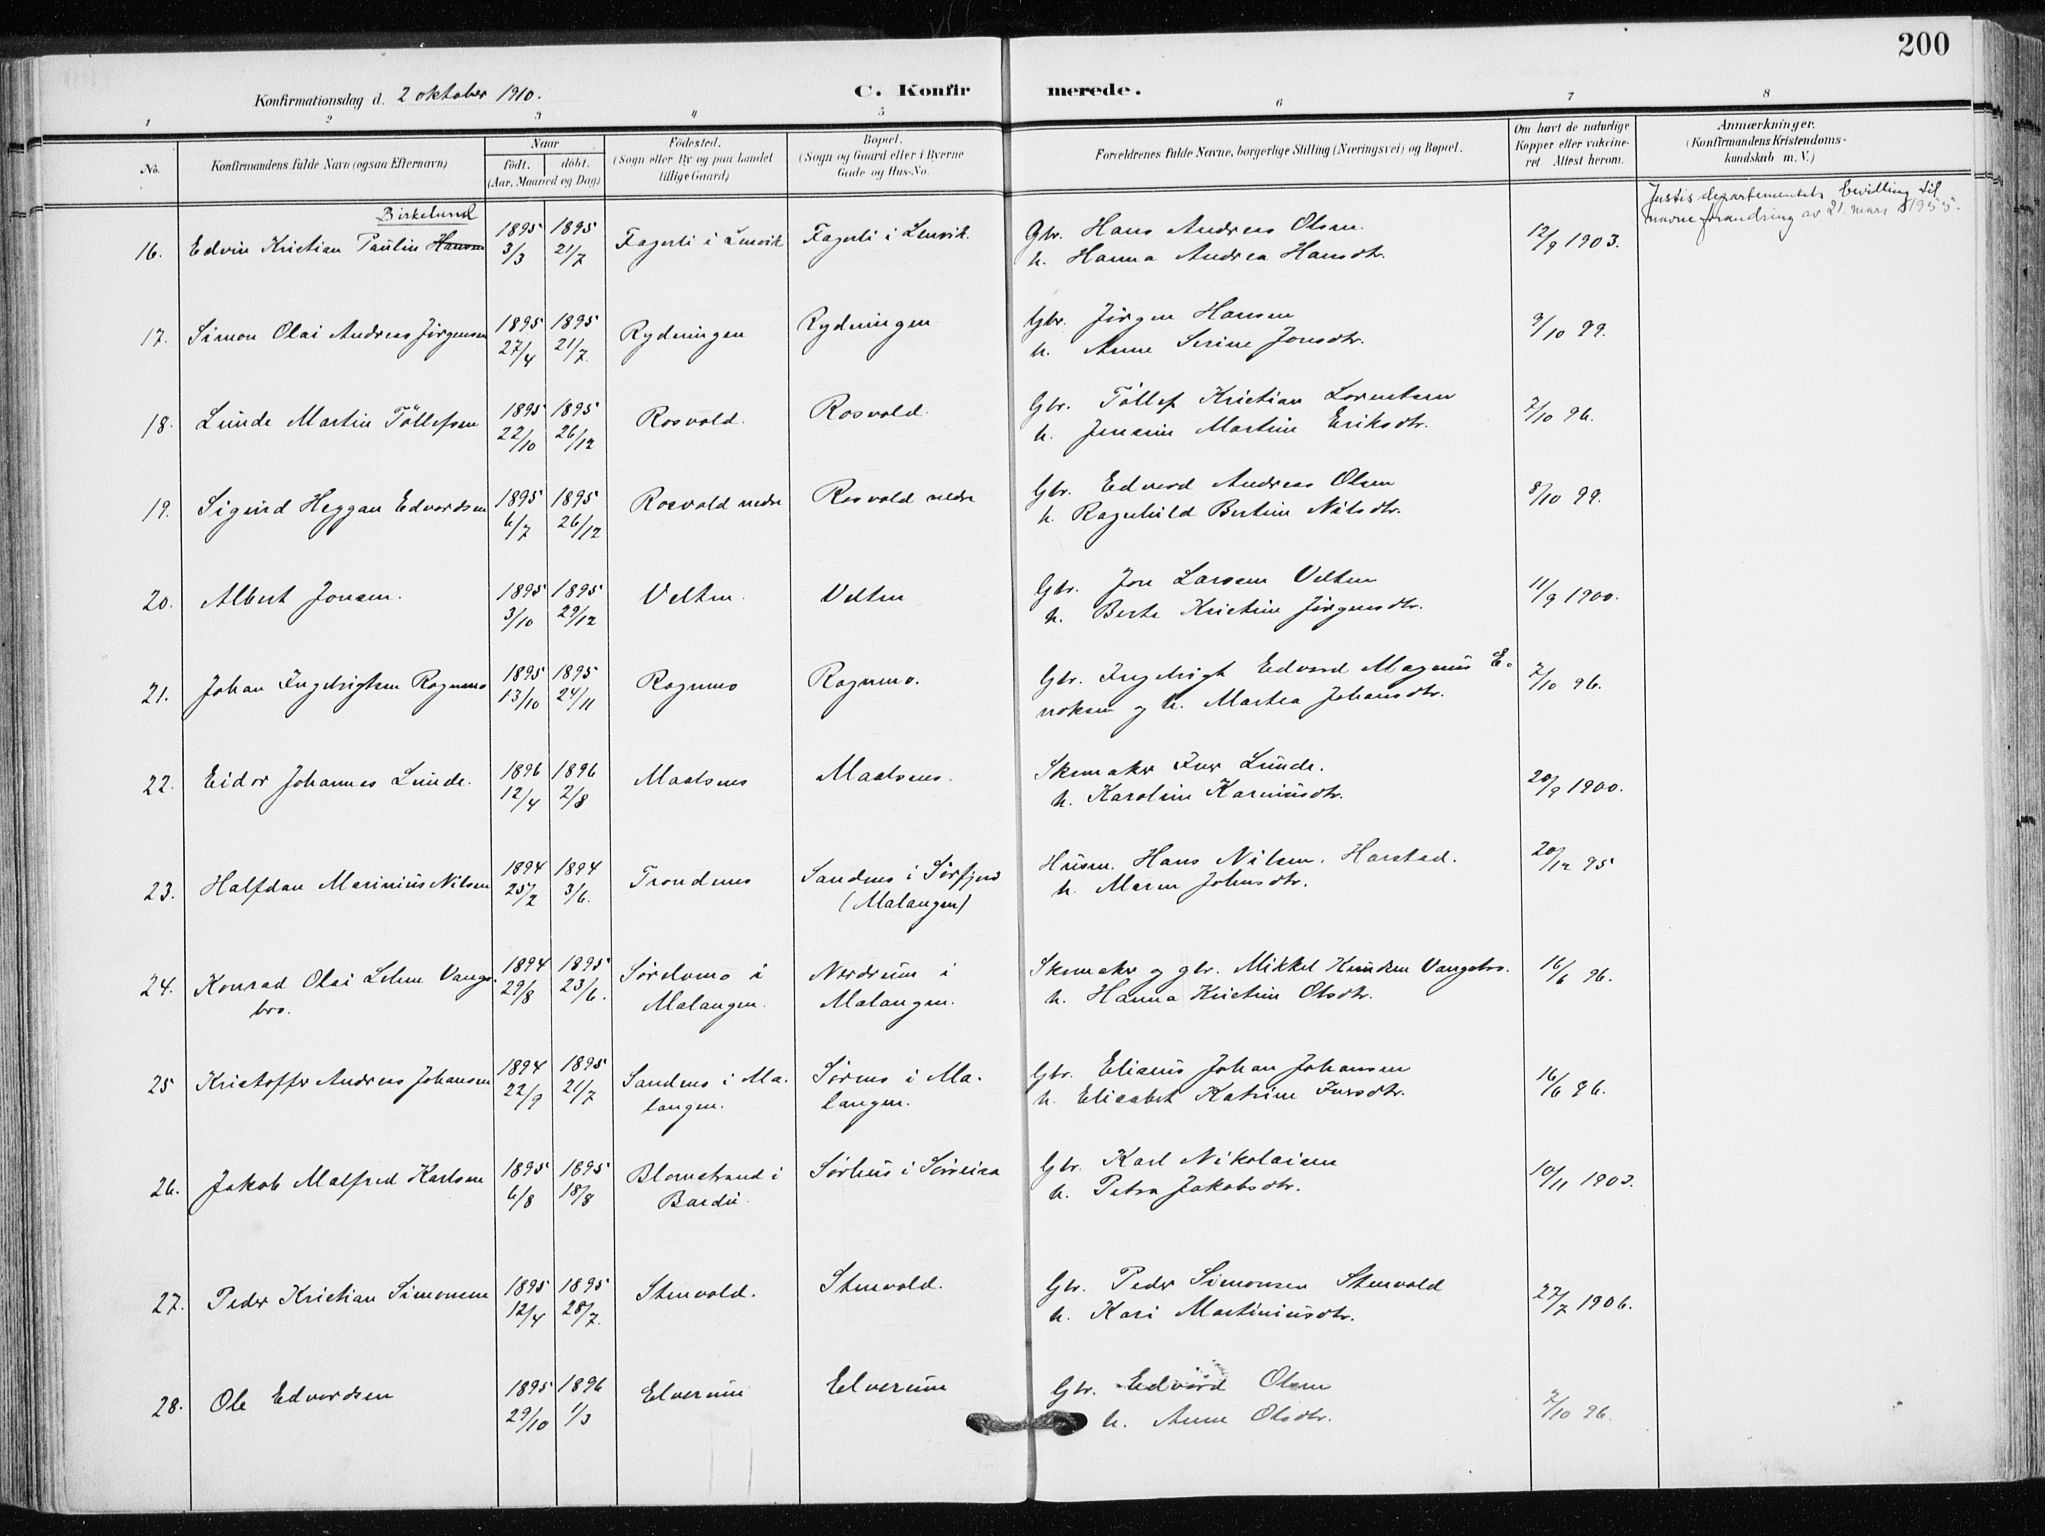 200
Konfirmationsdag d. 2 oktober 1910.
C. Konfir merede.
1 2 3 4 5 6 7 8
No.
Konfirmandens fulde Navn (ogsaa Efternavn)
Naar
født. døbt.
(Aar, Maaned og Dag)
Fødested.
(Sogn eller By og paa Landet
tillige Gaard)
Bopæl.
(Sogn og Gaard eller i Byerne
Gade og Hus-No.
Forældrenes fulde Navne, borgerlige Stilling (Næringsvei) og Bopæl.
Om havt de naturlige
Kopper eller vakcine-
ret. Attest herom.
Anmærkninger.
(Konfirmandens Kristendoms-
kundskab m. V.)
Justisdepartementets bevilling til
navneforandring av 21. mars 1955.
Birkelund
16. Edvin Kristian Paulin Hansen 1895 3/3 1895 21/7 Fagerli i Lenvik Fagerli i Lenvik Gbr. Hans Andreas Olsen. 12/9 1903.
h. Hanna Andrea Hansdtr.
17. Simon Olai Andreas Jørgensen 1895 27/4 1895 21/7. Rydningen Rydningen Gbr. Jørgen Hansen 9/10 99.
h. Anne Serine Jonsdtr.
18. Lunde Martin Tøllefsen 1895 22/10 1895 26/12 Rosvold. Rosvold. Gbr. Tøllef Kristian Lorentsen 7/10 96.
h. Jensine Martine Eriksdtr.
19. Sigurd Heggan Edvardsen 1895 6/7 1895 26/12 Rosvold nedre Rosvold nedre Gbr. Edvard Andreas Olsen 8/10 99.
h. Ragnhild Bertine Nilsdtr.
20. Albert Jonsen. 1895 3/10 1895 29/12 Velten. Velten Gbr. Jon Larsen Velten 11/9 1900.
h. Berte Kristine Jørgensdtr.
21. Johan Ingebrigtsen Rognmo 1895 13/10 1895 24/11 Rognmo Rognmo. Gbr. Ingebrigt Edvard Magnus E- 7/10 96.
noksen og h. Martea Johansdtr.
22. Eidor Johannes Lunde. 1896 12/4 1896 2/8 Maalsnes Maalsnes. Skomaker Iver Lunde. 20/9 1900.
h. Karoline Kareniusdtr.
23. Halfdan Marinius Nilsen 1894 25/2 1894 3/6. Trondenes Sandnes i Sørfjord Husm. Hans Nilsen. Harstad. 20/12 95
(Malangen) h. Maren Johnsdtr.
24. Konrad Olai Vangs- 1894 29/8 1895 23/6. Sørelvmo i Nordrum i Skomaker og gbr. Mikkel Knudsen Vangsbro. 16/6 96.
bro. Malangen. Malangen. h. Hanna Kristine Olsdtr.
25 Kristoffer Andreas Johansen 1894 22/9 1895 21/7 Sandnes i Ma- Sørnes i Ma- Gbr. Elisæus Johan Johansen 16/6 96.
langen. langen. h. Elisabet Katrine Iversdtr.
26. Jakob Malfred Karlsen 1895 6/8 1895 18/8 Blomstrand i Sørhus i Sørreisa Gbr. Karl Nikolaisen 10/11 1903.
Bardu. h. Petra Jakobsdtr.
27. Peder Kristian Simonsen 1895 12/4 1895 28/7. Stenvold. Stenvold. Gbr. Peder Simonsen Stenvold 27/7 1906.
h. Kari Martiniusdtr.
28. Ole Edvardsen 1895 29/10 1896 1/3 Elverum Elverum Gbr. Edvard Olsen 7/10 96.
h. Anne Olsdtr.